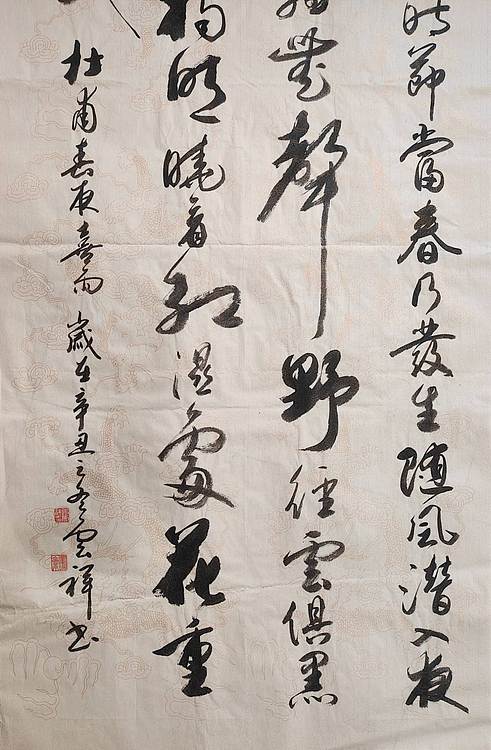 時節當春乃發生隨風潛入夜
細無聲野徑雲俱黑
獨明曉看紅濕處花重
杜甫春夜喜雨 歲在辛丑之冬雲祥书